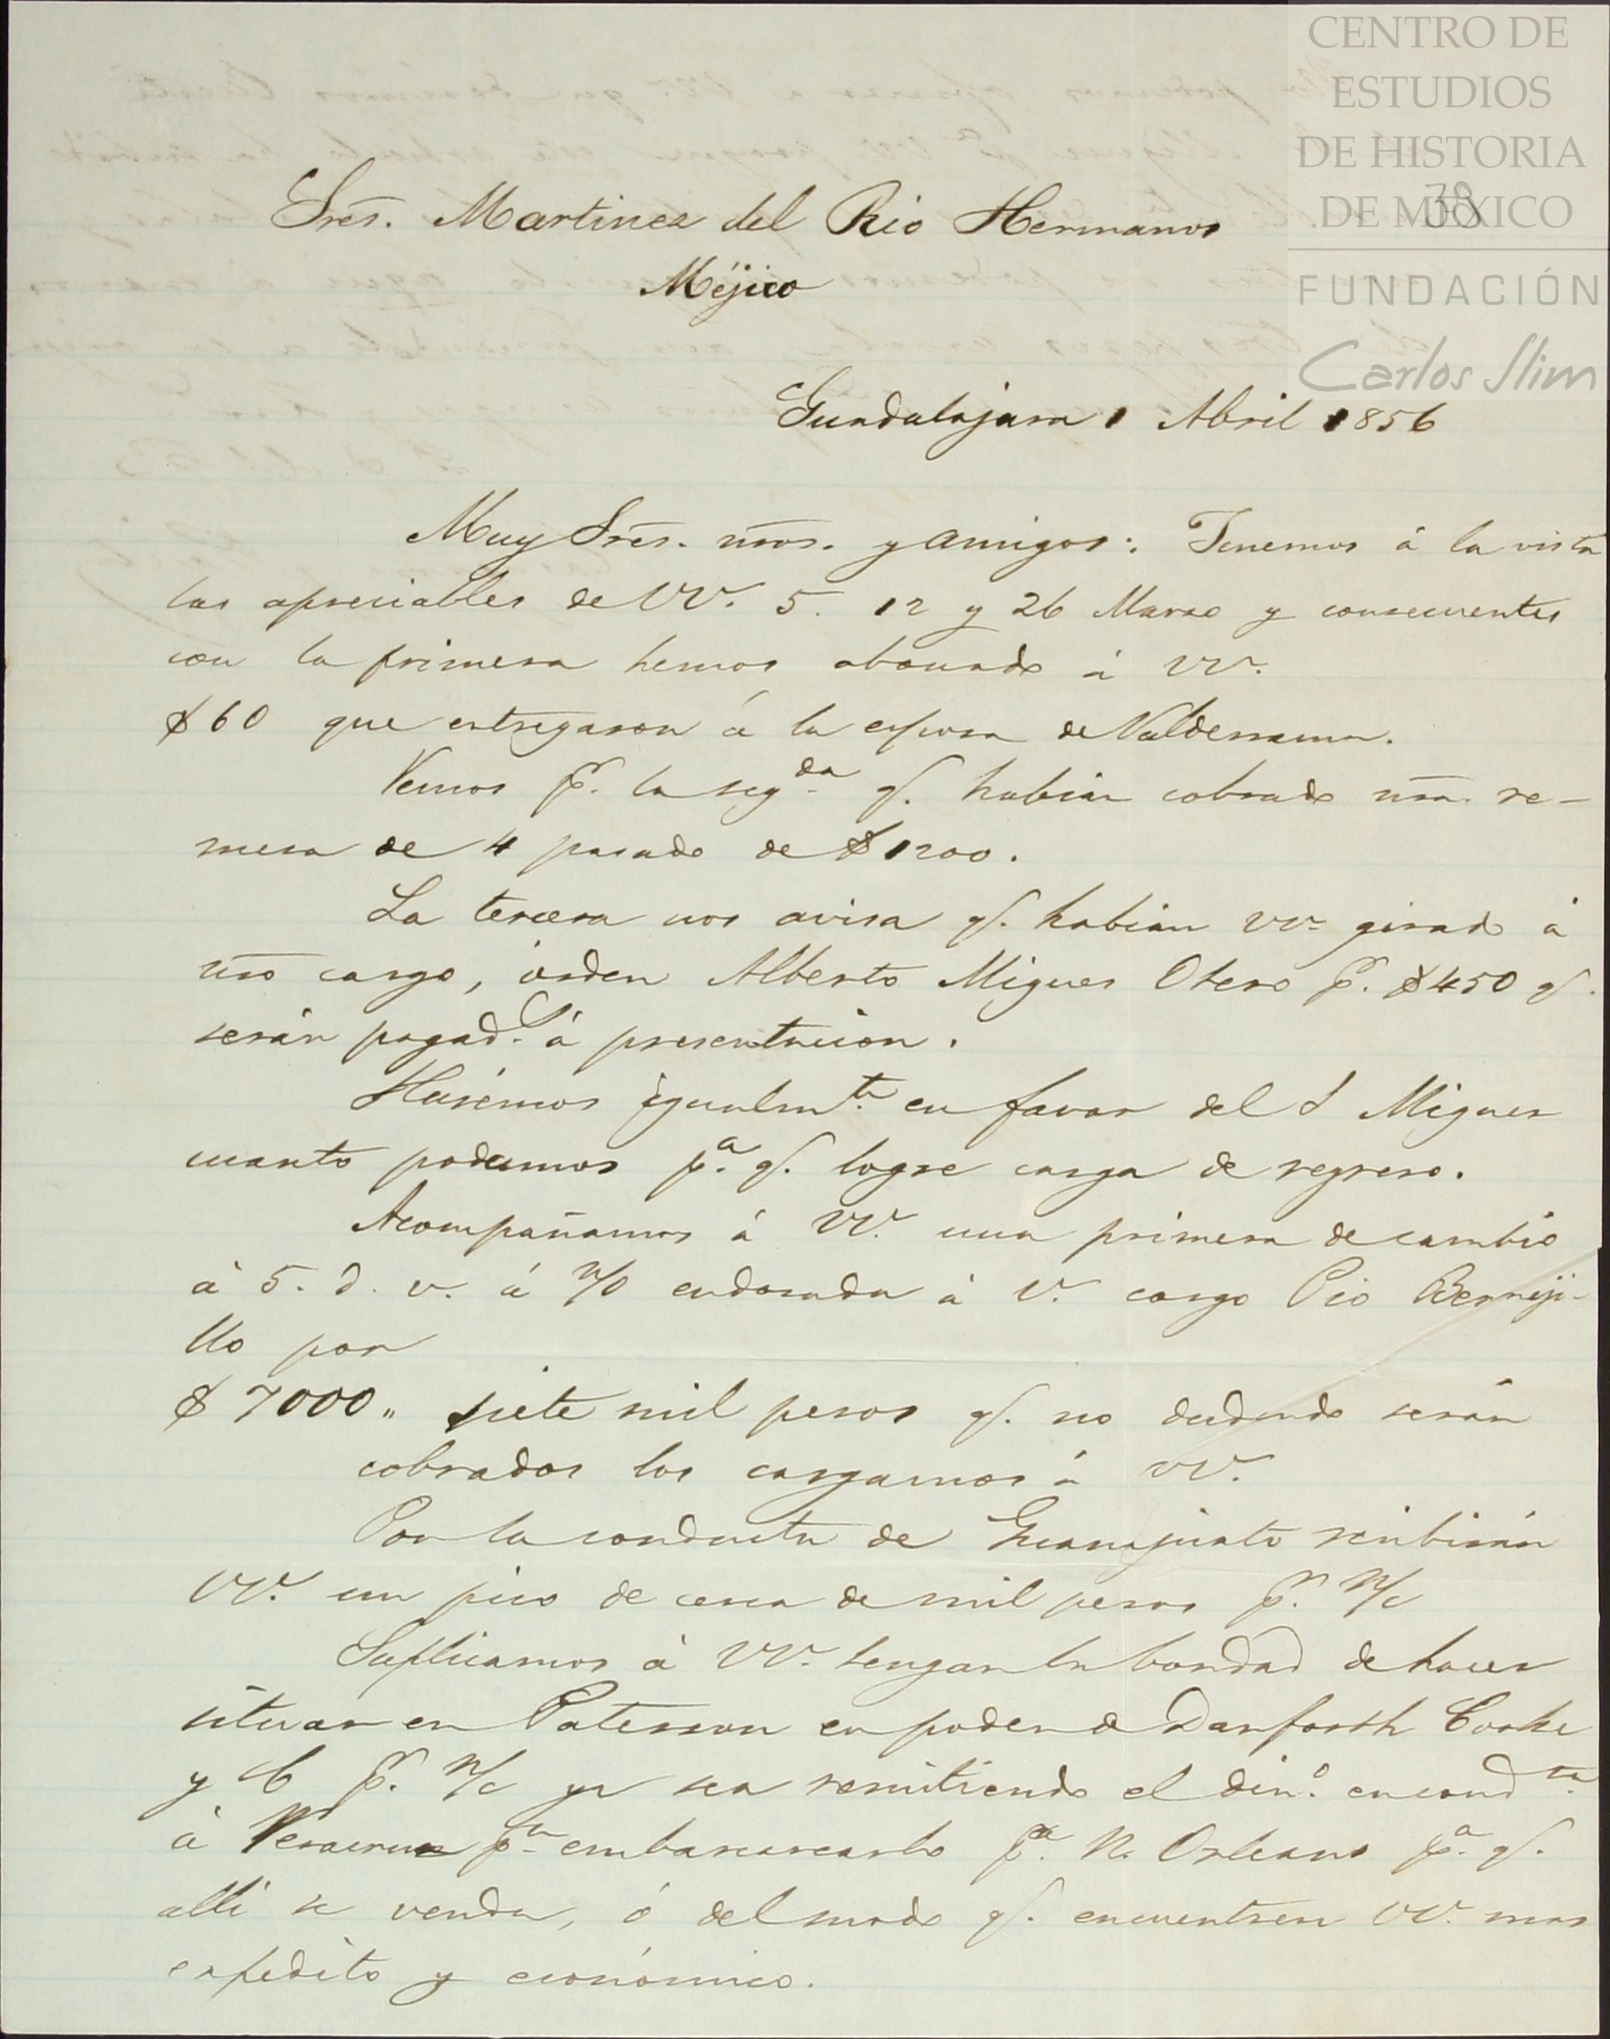 CENTRO DE
ESTUDIOS
DE HISTORIA
DE MÉXICO
38
FUNDACIÓN
Carlos Slim
Sres. Martinez del Rio Hermanos
Méjico
Guadalajara 1 Abril 1856
Muy Sres. nros. y amigos: Tenemos á la vista
las apreciables de VV. 5. 12 y 26 Marzo y consecuentes
con la primera hemos abonado á VV.
$60 que entregaron á la esposa de Valderrama.
Vemos pr. la segda. q. habian cobrado nra. re-
mesa de 4 pasado de $1200.
La tercera nos avisa q. habian VV. girado á
nro cargo, órden Alberto Migues Otero pr. $450 q.
serán pagad.s á presentacion.
Harémos igualmte. en favor del S Migues
cuanto podamos pa. q. logre carga de regreso.
Acompañamos á VV. una primera de cambio
á 5. d. v. á n/o endosada á V. cargo Pio Bermeji-
llo por
$7000,, siete mil pesos q. no dudando serán
cobrados los cargamos á VV.
Por la conducta de Guanajuato recibirán
VV. un pico de cerca de mil pesos pr. n/c
Suplicamos á VV. tengan la bondad de hacer
situar en Paterson en poder de Danforth Cooke
y C pr. n/c ya sea remitiendo el dino. en condta.
á Veracruz pa. embarcarlo pa. N. Orleans pa. q.
allí se venda, ó del modo q. encuentren VV. mas
expedito y económico.